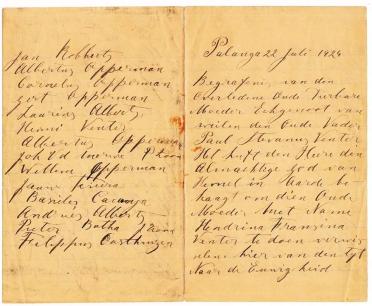 Jan Robberts
Albertus Opperman
Cornelus Opperman
Gert Opperman
Laurins Alberts
Henni Venter
Albertus Opperman
Joh v d Merwe
Willem Opperman
Basilis
Andries Alberts
Pieter Botha
Filippus Oosthuizen
Palanga 22 Juli 1924
Begrafenis van den
Overledene Oude Eerbare
Moeder Echgenoot van
weilen den Oude Vader
Paul Stevanus Venter
Het heeft den Heere den
Almachtige God van
Hemel en Aarde be
haagt om dien Oude
Moeder met Name
Hendrina Fransina
Venter te doen verwis
selen hier van den tyt
Naar de Eeuwigheid